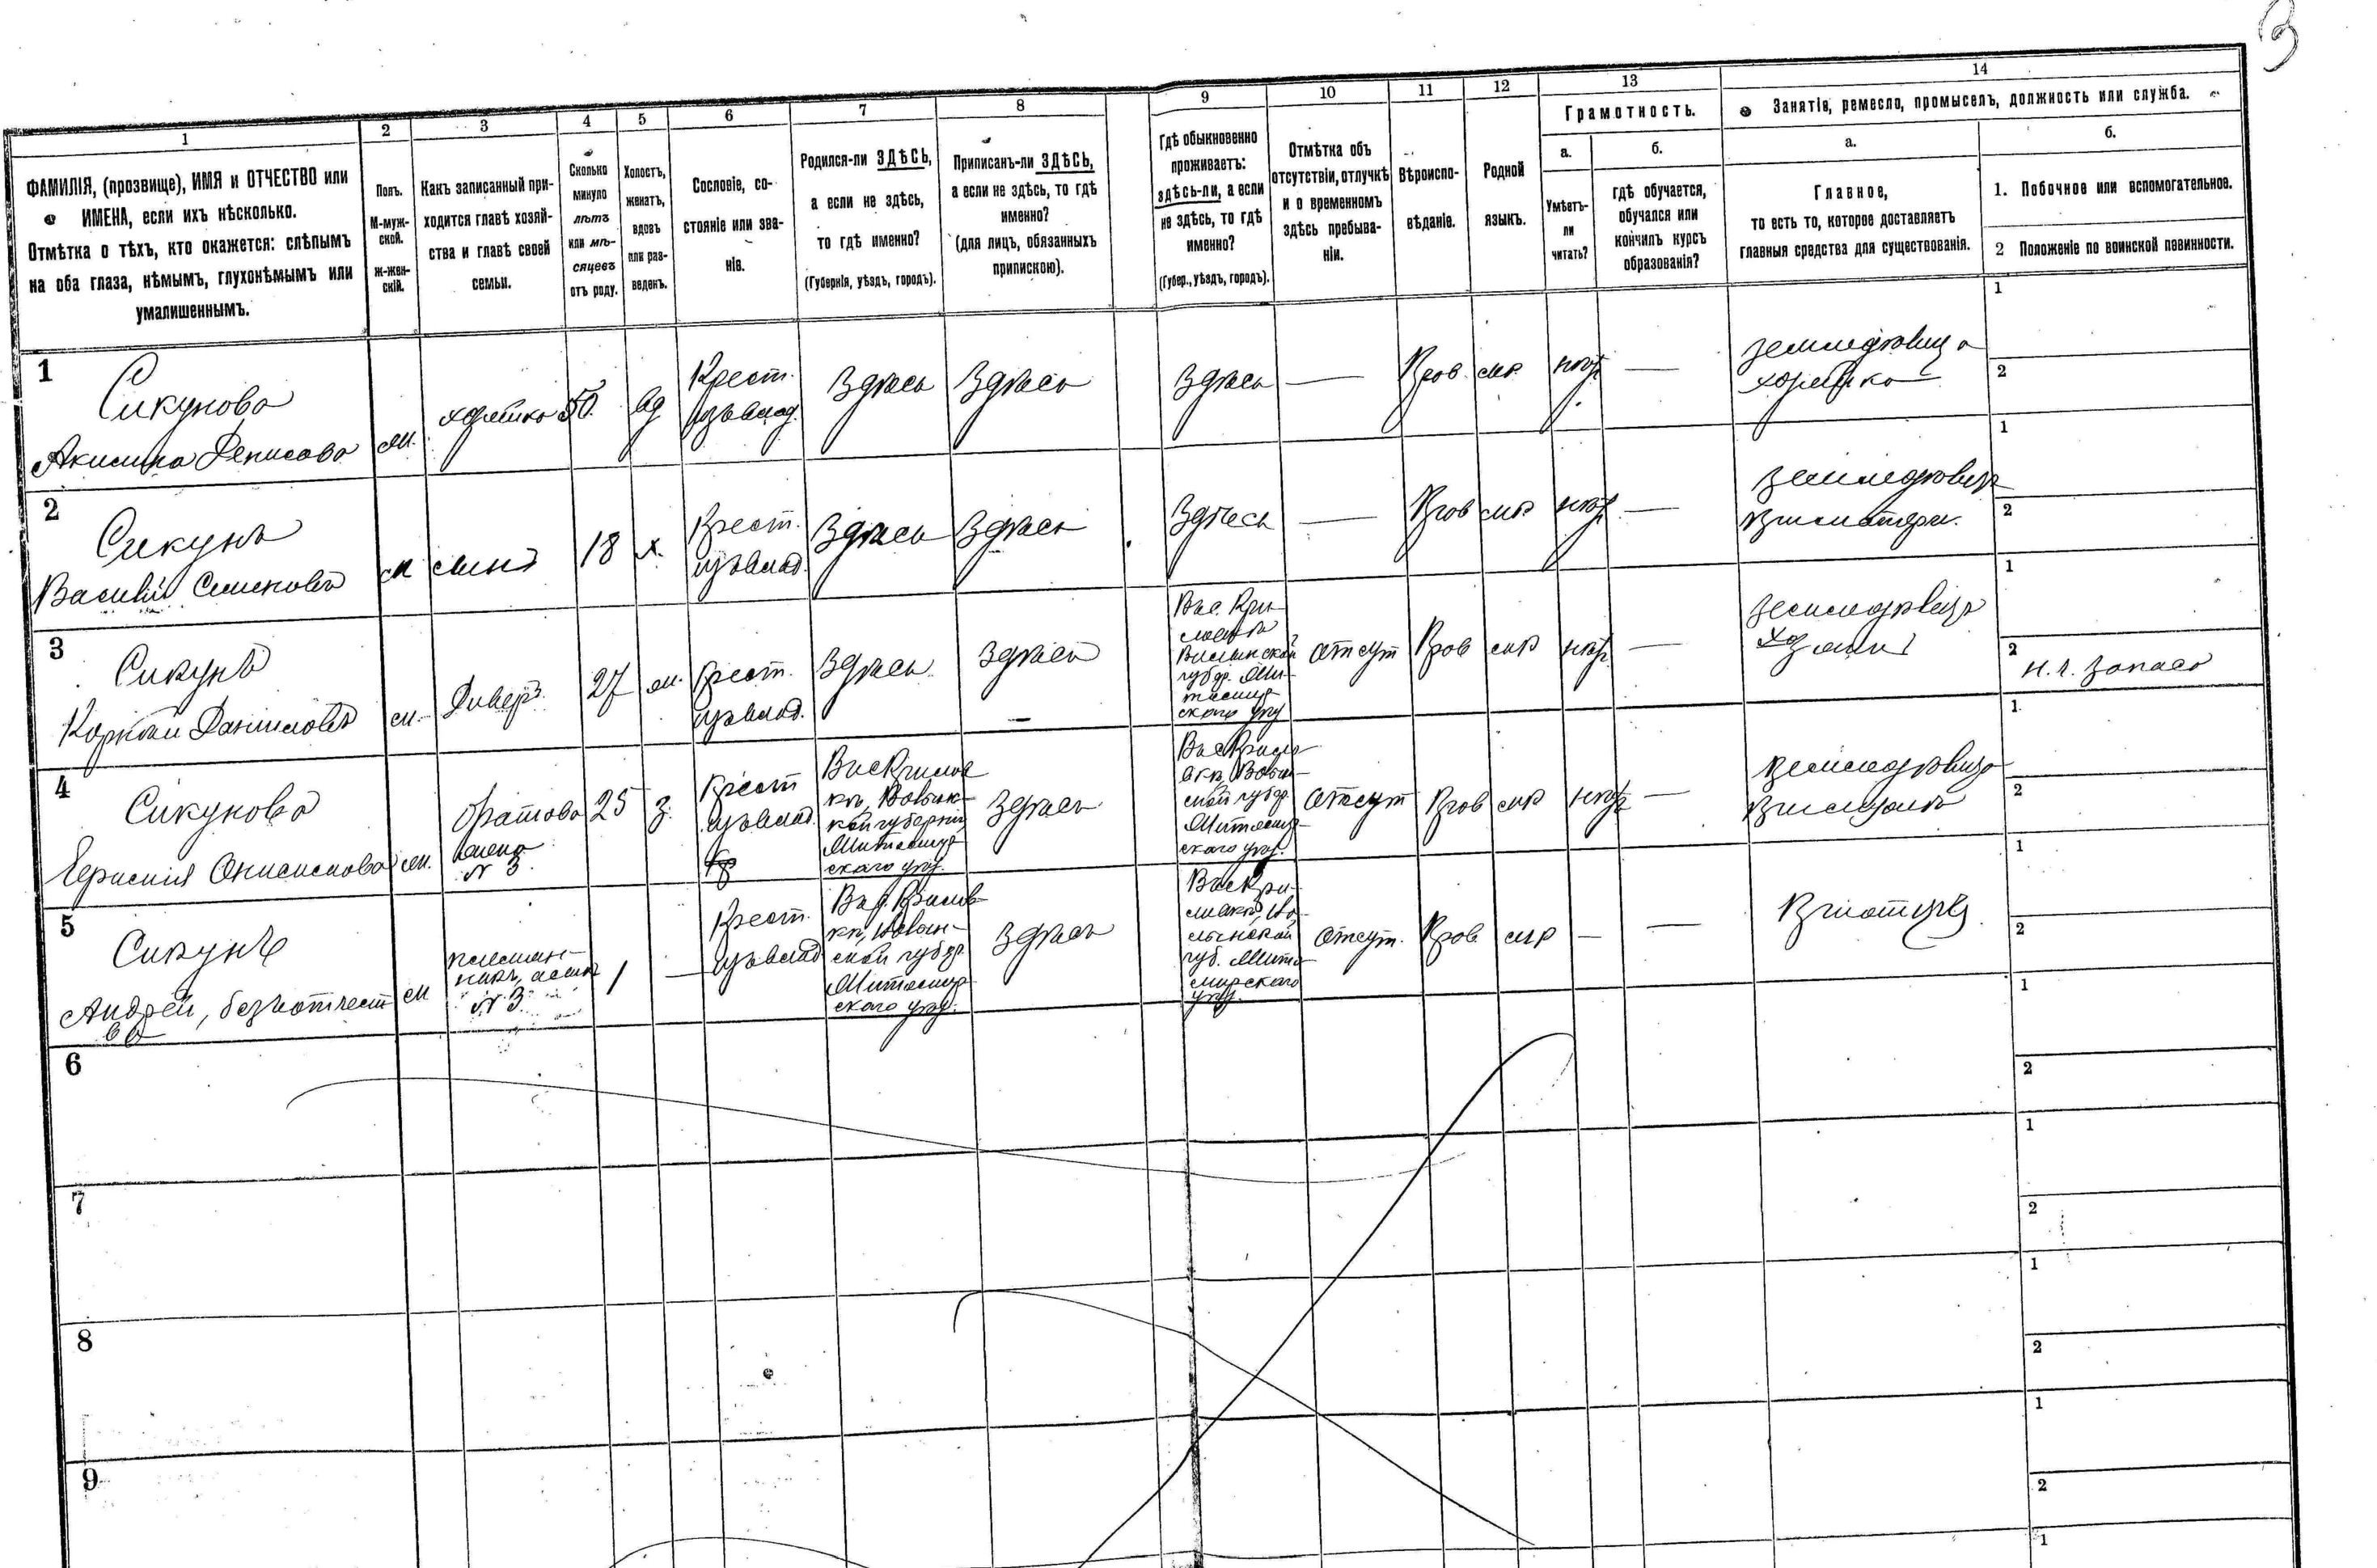 3
1
2
3
4
5
6
7
8
9
10
11
12
13
14
ФАМИЛІЯ, (прозвище), ИМЯ и ОТЧЕСТВО или
ИМЕНА, если ихъ нѣсколько.
Отмѣтка о тѣхъ, кто окажется: слѣпымъ
на оба глаза, нѣмымъ, глухонѣмымъ или
умалишеннымъ.
Полъ.
М-муж-
ской.
ж-жен-
скій.
Какъ записанный при-
ходится главѣ хозяй-
ства и главѣ своей
семьи.
Сколько
минуло
лѣтъ
или мѣ-
сяцевъ
отъ роду.
Холостъ,
женатъ,
вдовъ
или раз-
веденъ.
Сословіе, со-
стояніе или зва-
ніе.
Родился-ли ЗДѢСЬ,
а если не здѣсь,
то гдѣ именно?
(Губернія, уѣздъ, городъ).
Приписанъ-ли ЗДѢСЬ,
а если не здѣсь, то гдѣ
именно?
(для лицъ, обязанныхъ
припискою).
Гдѣ обыкновенно
проживаетъ:
здѣсь-ли, а если
не здѣсь, то гдѣ
именно?
(Губер., уѣздъ, городъ).
Отмѣтка объ
отсутствіи, отлучкѣ
и о временномъ
здѣсь пребыва-
ніи.
Вѣроиспо-
вѣданіе.
Родной
языкъ.
Грамотность.
а.
Умѣетъ-
ли
читать?
б.
гдѣ обучается,
обучался или
кончилъ курсъ
образованія?
Занятіе, ремесло, промыселъ, должность или служба.
а.
Главное,
то есть то, которое доставляетъ
главныя средства для существованія.
б.
1. Побочное или вспомогательное.
2 Положеніе по воинской повинности.
1
Сикунова
Акилина Денисова
хозяйка
50
вд
Крест.
изъ влад.
Здѣсь
Здѣсь
Здѣсь
—
Прав.
мр.
—
земледѣлица
хозяйка
1
2
2
Сикунъ
Василій Семеновъ
м
сынъ
18
х.
Крест.
изъ влад.
Здѣсь
Здѣсь
Здѣсь
—
Прав
мр
—
земледѣлец
при матери.
1
2
3
Сикунъ
Данилов
м.
Диверъ
27
ж.
Крест.
изъ влад.
Здѣсь
Здѣсь
Волынской
губер. Жи-
томир
скаго уѣз
отсут
Прав
мр
—
земледѣлец
хозяинъ
1
2
н. ч. запаса
4
Сикунова
Онисимова
ж.
братова
жена
№ 3.
25
з.
Крест
изъ влад.
Волын-
ской губерніи,
Житомир
скаго уѣз.
Здѣсь
Волын-
ской губер.
Житомир-
скаго уѣз.
отсут
Прав
мр
—
земледѣлица
при мужѣ
1
2
5
Сикунъ
Андрей, безъ отчест
ва
м
племян-
никъ, а сынъ
№ 3.
1
—
Крест.
изъ влад
Волын-
ской губер.
Житомир
скаго уѣз.
Здѣсь
Во-
лынской
губ. Жито-
мирскаго
уѣз.
отсут.
Прав
мр
—
—
При отцѣ
1
2
6
1
2
7
1
2
8
1
2
9
1
2
1